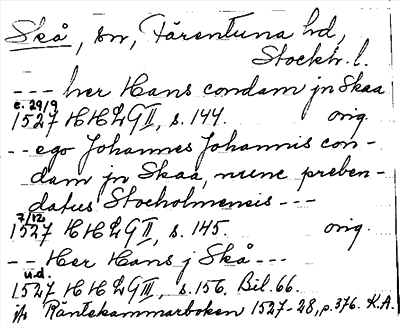 Skå, sn, Färentuna hd,
Stockh. l.
--- her Hans condam jn Skaa
e. 29/9
1527 HH Z G II, s. 144. orig.
-- ego Johannes Johannis con-
dam jn Skaa, nunc preben-
datus Stocholmensis ---
7/12
1527 HH Z G II, s. 145. orig.
-- Her Hans j Skå ---
u.d.
1527 HH Z G III, s. 156. Bil. 66.
Räntekammarboken 1527-28, p. 376. K.A.